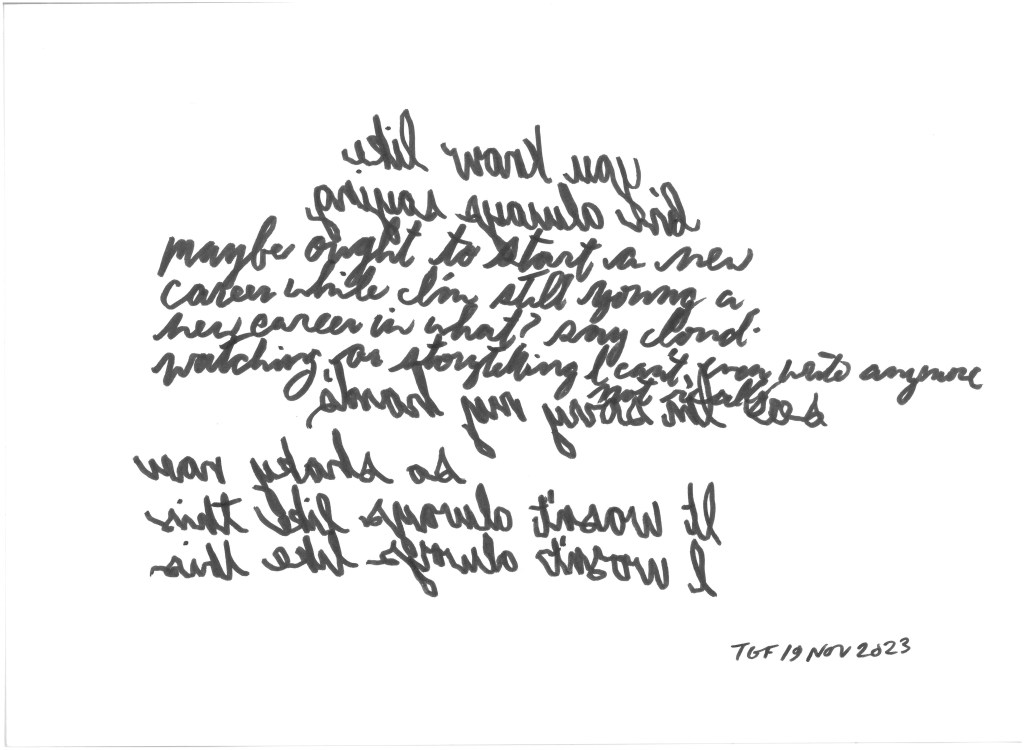 you know like
always saying
maybe ought to start a new
career while I'm still young a
new career in what? say cloud-
watching or storytelling I can't even write anymore
I'm sorry my hand's
so shaky now
It wasn't always like this
I wasn't always like this
TGF 19 NOV 2023